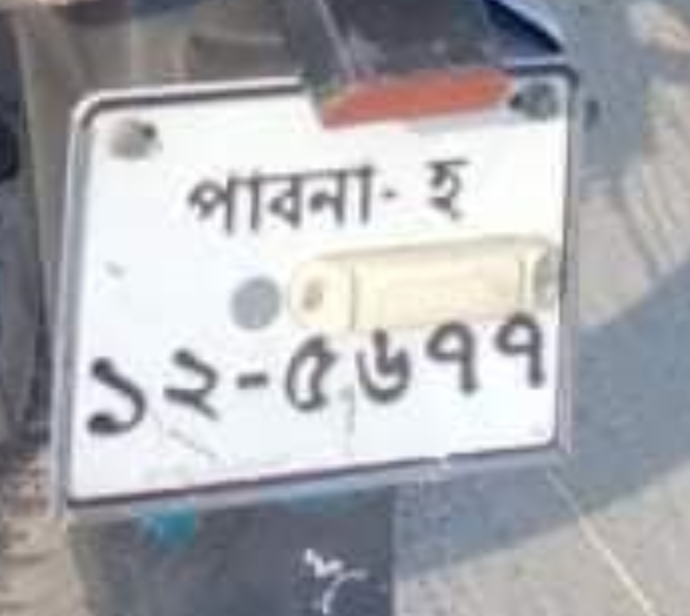 পাবনা- হ
১২-৫৬৭৭